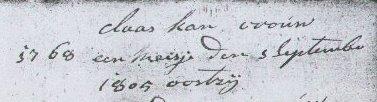 claas kan vroun
1768 een meisje den 5 September
1805 oostzij